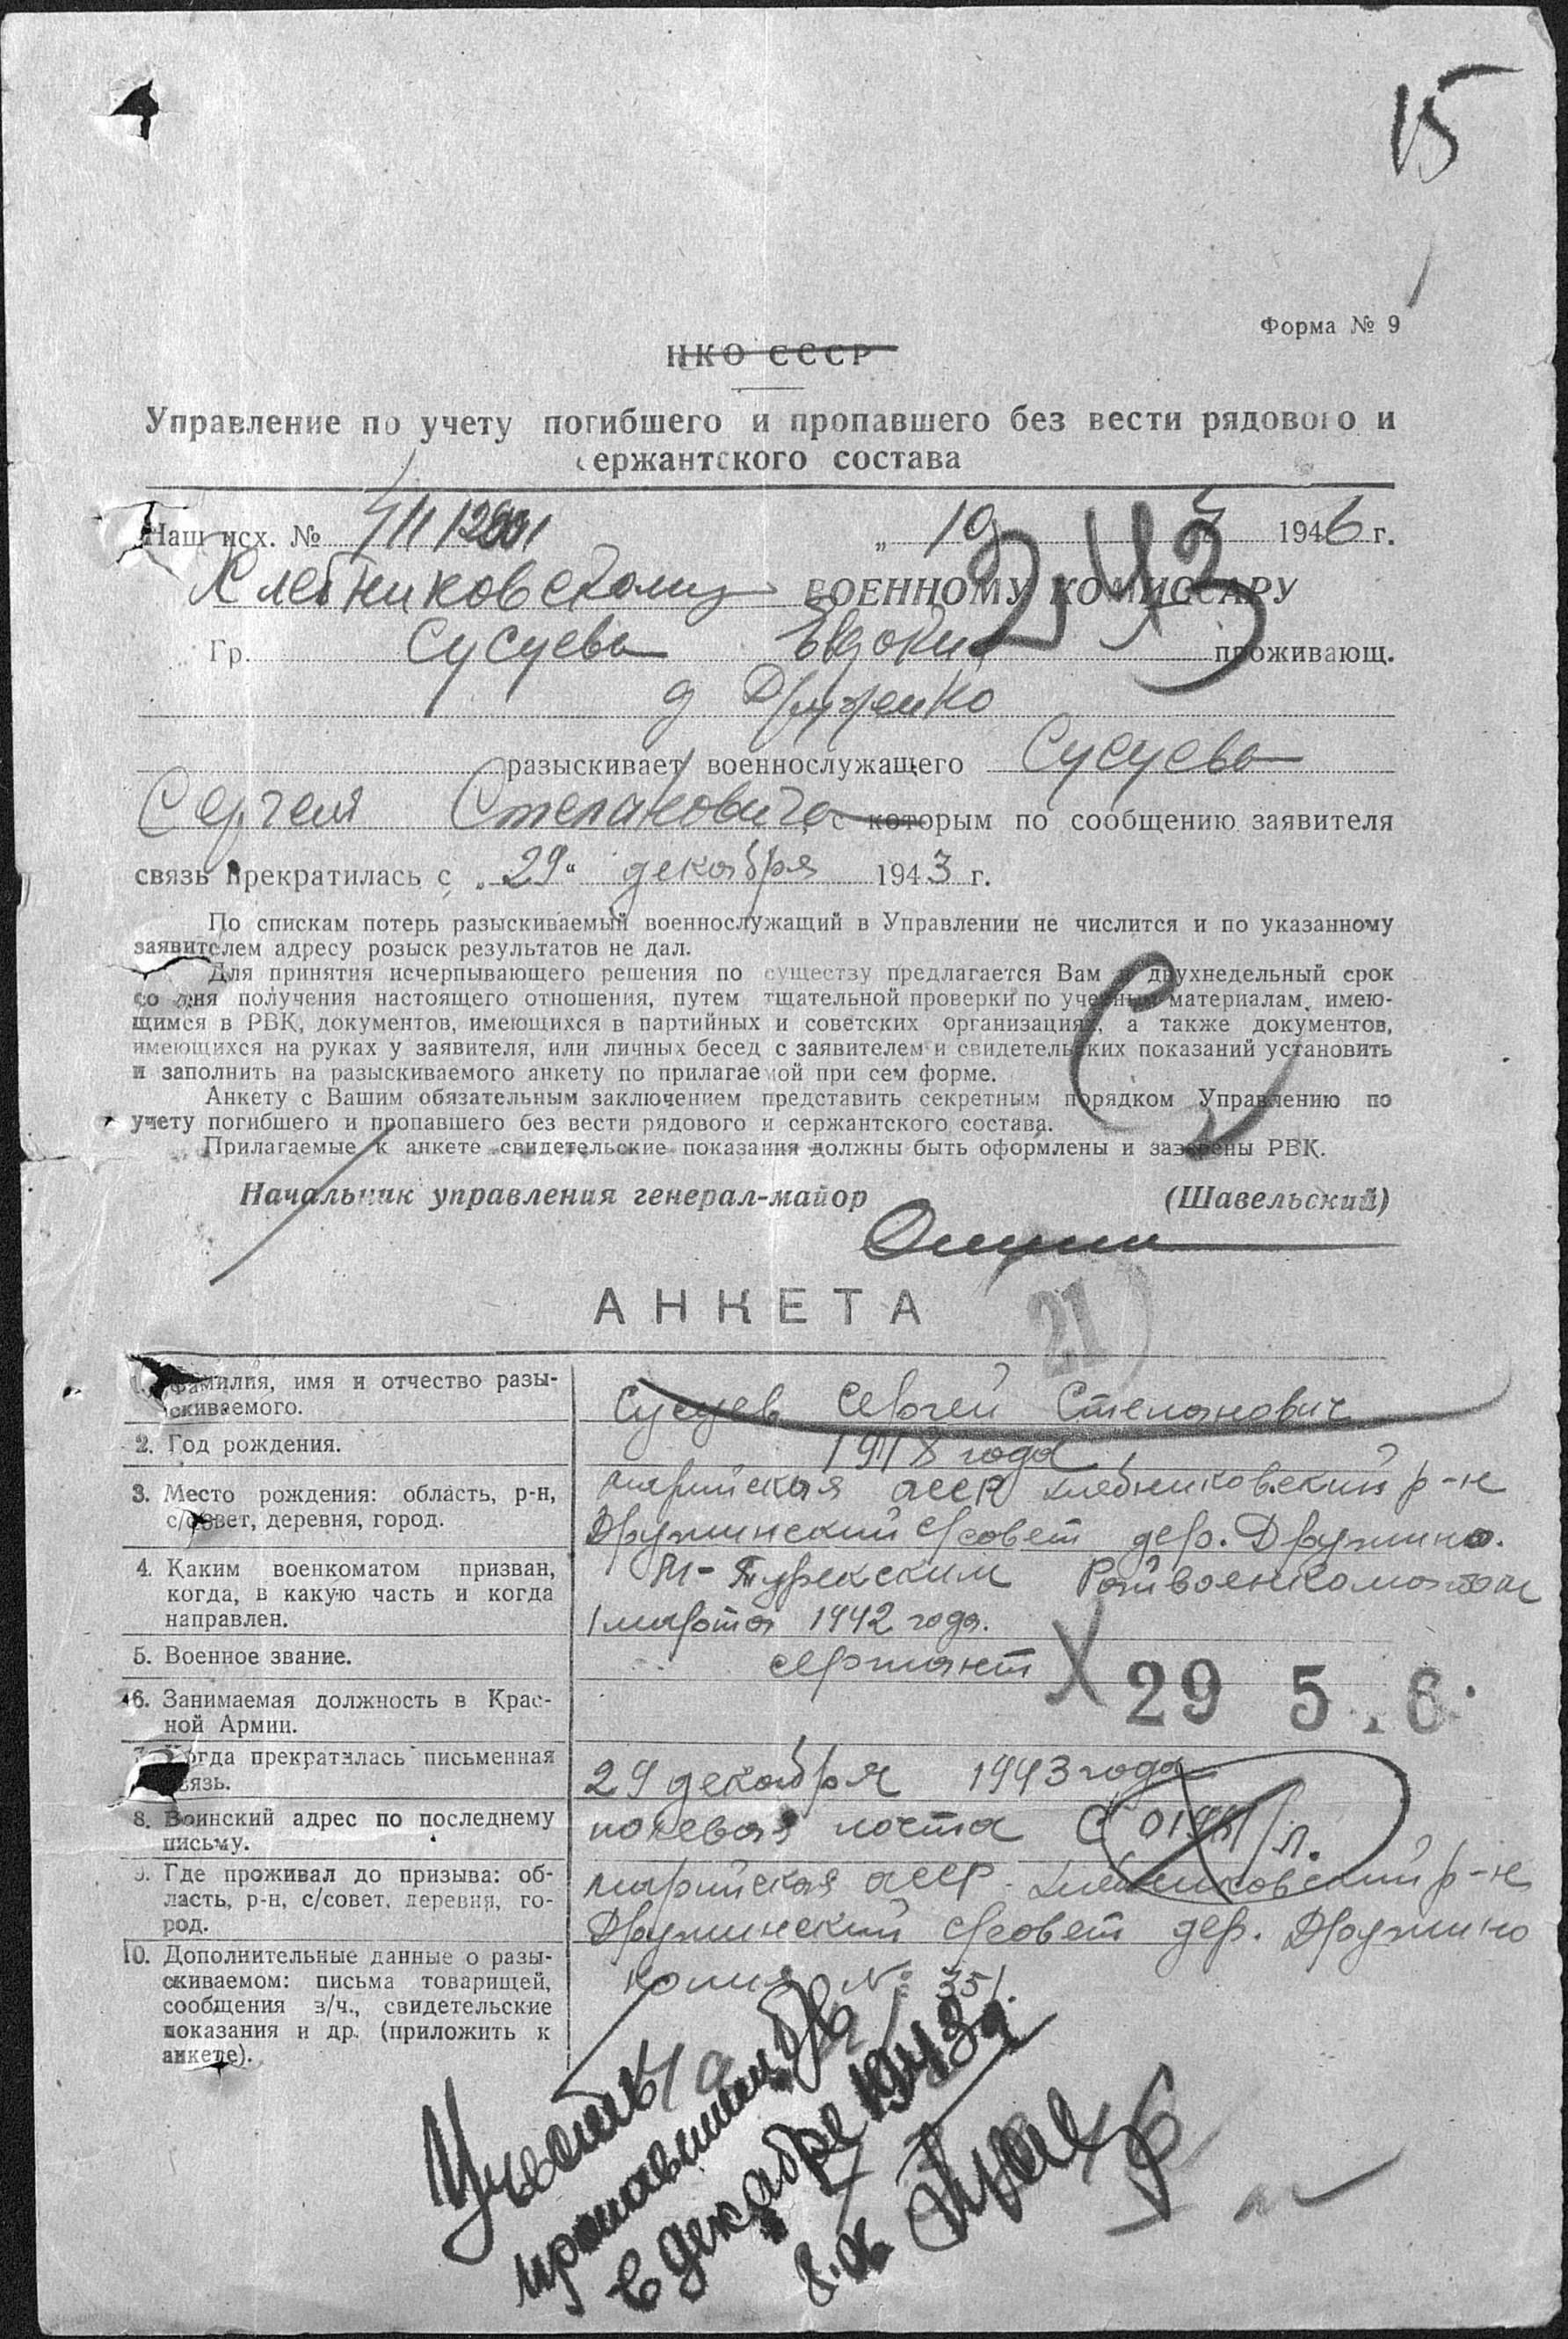 15
Форма № 9
НКО СССР
Управление по учету погибшего и пропавшего без вести рядового и
сержантского состава
Наш исх. № „ 19 1946 г.
243
Хлебниковскому ВОЕННОМУ КОМИССАРУ
Гр. Сусуева проживающ.
д
разыскивает военнослужащего Сусуева
Сергея Степановича с которым по сообщению заявителя
связь прекратилась с „29“ декабря 1943 г.
По спискам потерь разыскиваемый военнослужащий в Управлении не числится и по указанному
заявителем адресу розыск результатов не дал.
Для принятия исчерпывающего решения по существу предлагается Вам в двухнедельный срок
со дня получения настоящего отношения, путем тщательной проверки по учетным материалам, имею-
щимся в РВК, документов, имеющихся в партийных и советских организациях, а также документов,
имеющихся на руках у заявителя, или личных бесед с заявителем и свидетельских показаний установить
и заполнить на разыскиваемого анкету по прилагаемой при сем форме.
Анкету с Вашим обязательным заключением представить секретным порядком Управлению по
учету погибшего и пропавшего без вести рядового и сержантского состава.
Прилагаемые к анкете свидетельские показания должны быть оформлены и заверены РВК.
Начальник управления генерал-майор (Шавельский)
АНКЕТА
21
1. Фамилия, имя и отчество разы-
скиваемого.
Сусуев Сергей Степанович
2. Год рождения.
1918 года
3. Место рождения: область, р-н,
с/совет, деревня, город.
марийская АССР Хлебниковский р-н
Дружинский с/совет дер. Дружино.
4. Каким военкоматом призван,
когда, в какую часть и когда
направлен.
М-Турекским Райвоенкоматом
1 марта 1942 года.
5. Военное звание.
сержант
29 5.6.
6. Занимаемая должность в Крас-
ной Армии.
7. Когда прекратилась письменная
связь.
29 декабря 1943 года
8. Воинский адрес по последнему
письму.
полевая почта
9. Где проживал до призыва: об-
ласть, р-н, с/совет, деревня, го-
род.
марийская АССР Хлебниковский р-н
Дружинский с/совет дер. Дружино
10. Дополнительные данные о разы-
скиваемом: письма товарищей,
сообщения в/ч., свидетельские
показания и др. (приложить к
анкете).
копия № 351.
Учесть
пропавшим б/в
в декабре 1943г